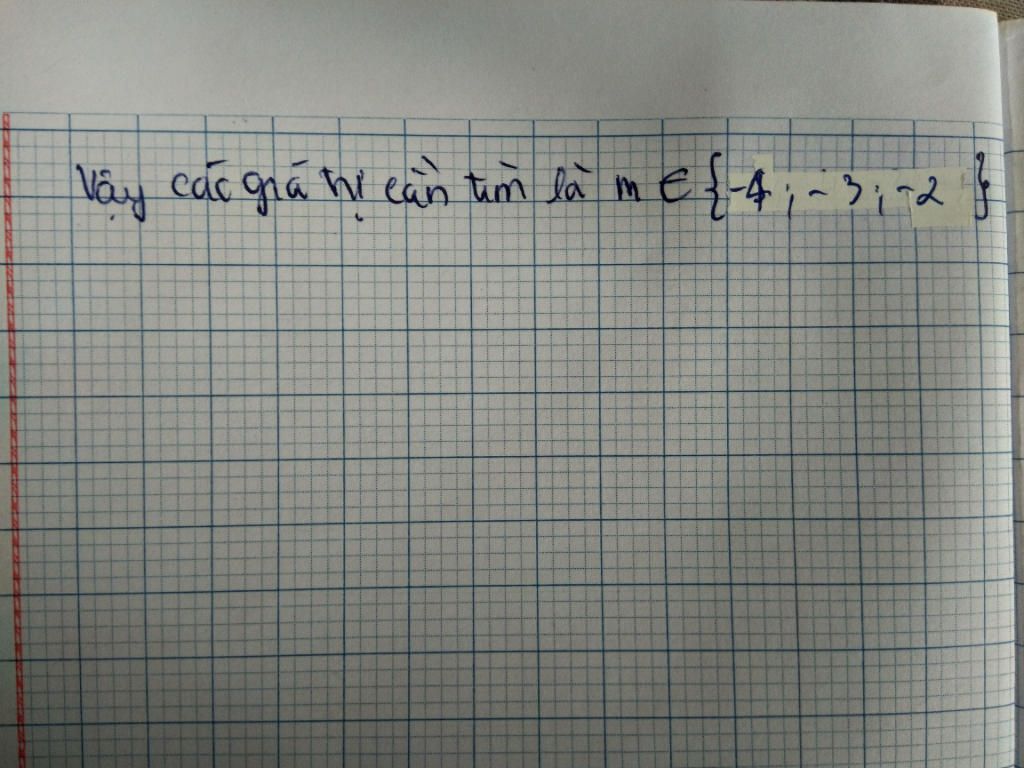 Vậy các giá trị cần tìm là m ∈ {-4; -3; -2}